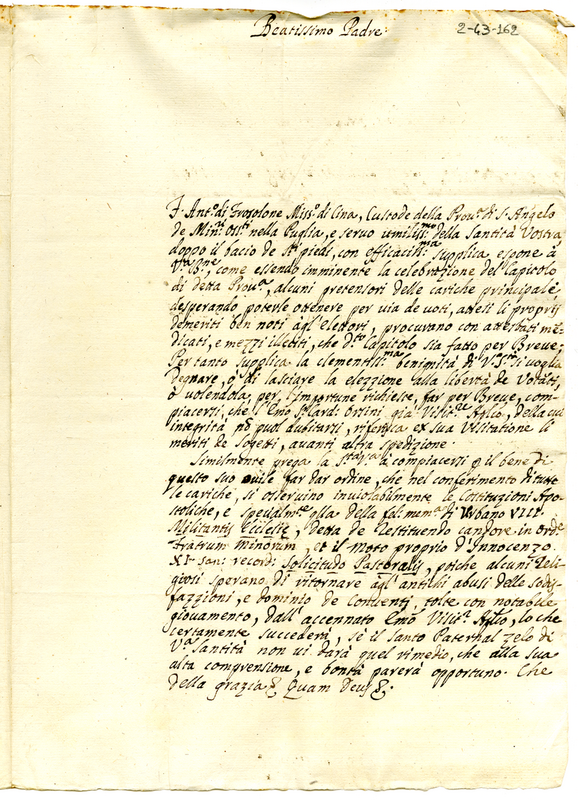 Beatissimo Padre
2-43-162
F. Ant.º di Frosolone Miss.º di Cina, Custode della Prou.ª di S. Angelo
de Min.ri Oss.ti nella Puglia, e seruo umiliss.mo della Santità Vostra,
doppo il bacio de S.ti piedi, con efficaciss.ma supplica, espone à
V.ª B.ne, come essendo imminente la celebrazione del Capitolo
di detta Prou.ª, alcuni pretensori delle cariche principale,
desperando poterle ottenere per via de voti, attesi li proprij
demeriti ben noti agl'elettori, procurano con attestati me=
dicati, e mezzi illeciti, che d.to Capitolo sia fatto per Breue;
Pertanto supplica la clementiss.ma benignità di V.ª S.tà si voglia
degnare, ò di lasciare la elezzione alla libertà de Votati,
ò volendola, per l'importune richieste, far per Breue, com=
piacerzi, che l'Emo S.r Card. Orsini già Visit.re Aplico, della cui
integrità nõ puol dubitarzi, riferisca ex sua Visitatione li
meriti de Sogetti, auanti altra spedizione.
Similmente prega la S.tà V.ª à compiacerzi p il bene di
questo suo ouile far dar ordine, che nel conferimento di tutte
le cariche, si osseruino inuiolabilmente le Costituzioni Apo=
stoliche, e spezialm.te qlla della fel. mem.ª di Urbano VIII.
Militantis Ecclesiæ, detta de restituendo candore in Ord.e
Fratrum Minorum, et il Moto proprio d'Innocenzo
XI. San: record: Solicitudo Pastoralis, poiche alcuni Reli=
giosi sperano, di ritornare agl'antichi abusi delle Sodis=
fazzioni, e dominio de Conuenti, tolte con notabile
giouamento, dall'accennato Emo Visit.r Aplico, lo che
certamente succederà, se il Santo Paternal zelo di
V.ª Santità non ui darà quel rimedio, che alla sua
alta comprensione, e bontà parerà opportuno. Che
della grazia &. Quam Deus &.